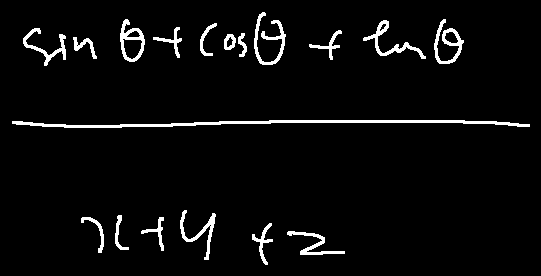 sin θ + cosθ + tanθ
x + y + z